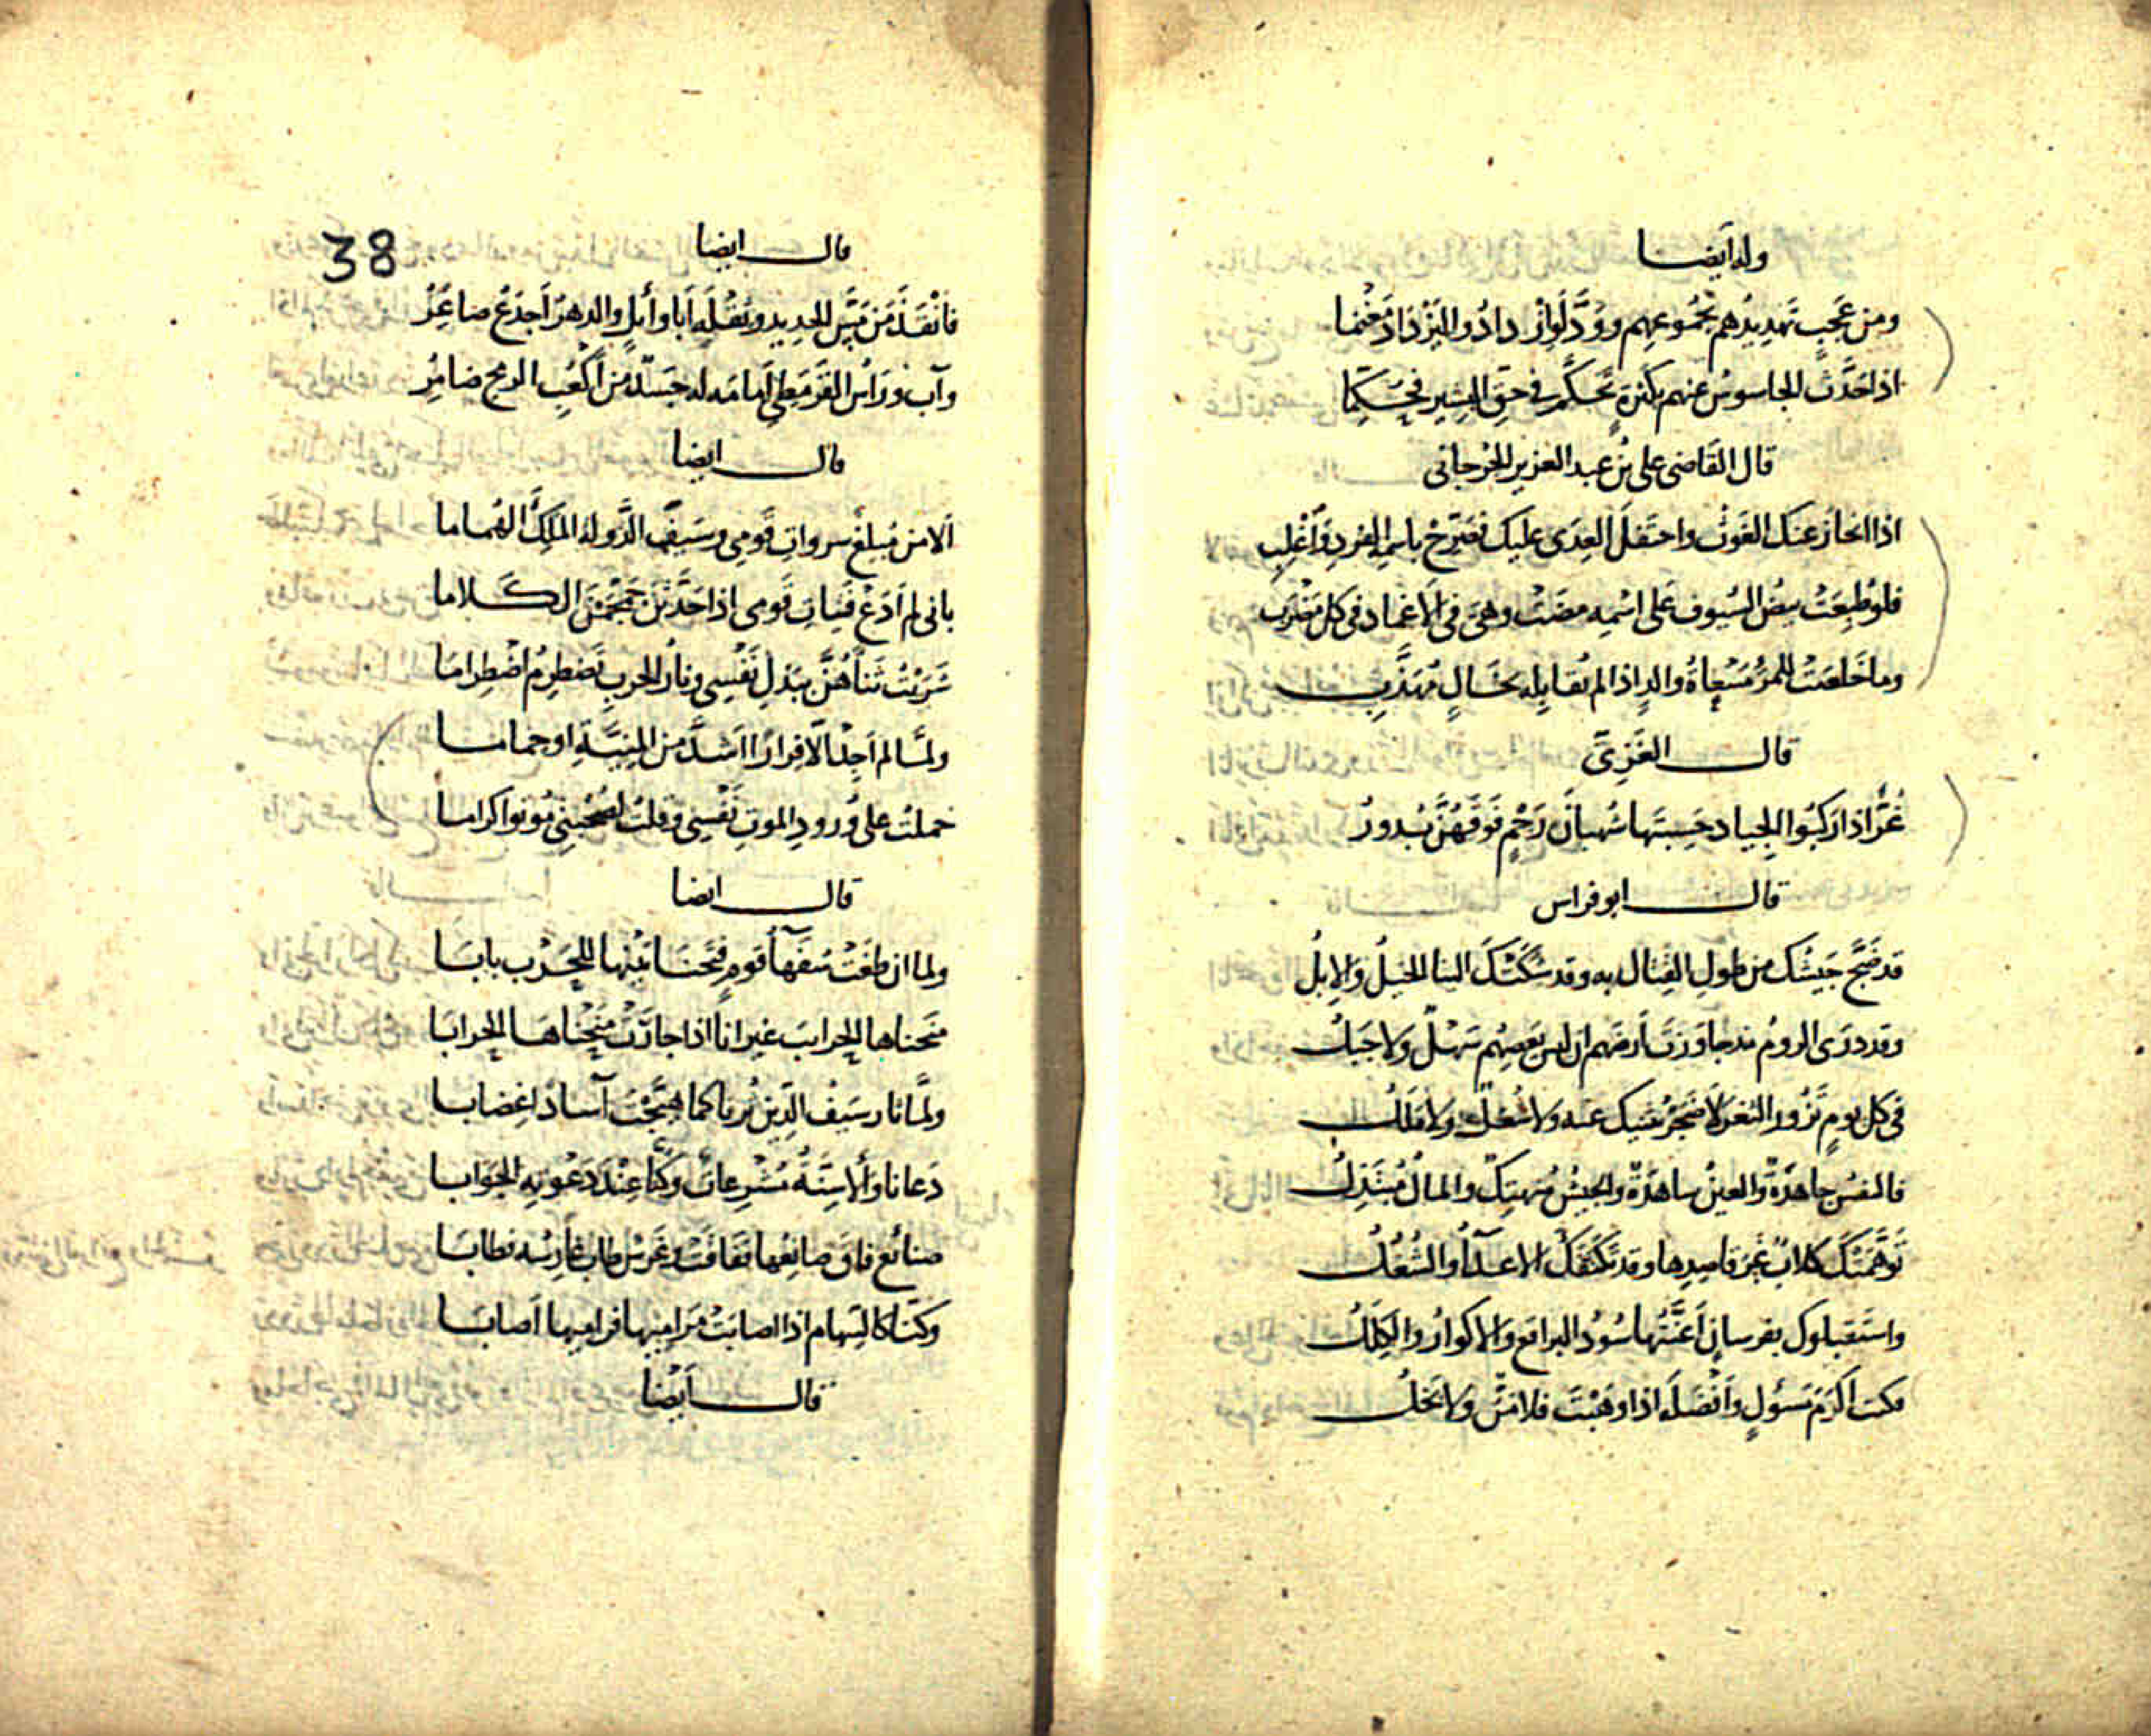 وله أيضا
ومن عَجَبٍ تهديدُهم بجُموعهم ووَدَّ لَوِ ازْدادُوا ليَزْدَادَ مَغْنَما
اذا حَدَّثَ الجاسوسُ عنهم بكثرةٍ تَحكَّم في حقّ البشير تحكّما
قال القاضى على بن عبد العزيز الجرجانى
اذا انحازَ عنك الغَوثُ واحتفلَ العِدَى عليك فصَرّحْ باسمِه الفردِ واَغْلِبِ
فلو طُبِعَتْ بيضُ السُيوف على اسْمِه مضَتْ وهىَ فى الاغماد فى كل مَضْربِ
وما خَلُصَتْ للمرْءِ مَسْعاةُ والدٍ اذا لم تُقابِله بخَالٍ مُهذَّبِ
قال الغَزِىّ
غُرٌّ اذا رَكِبُوا الجِياد حَسِبتَها شُهبانَ رَجْمٍ فَوقَهُنَّ بُدورُ
قال ابو فراس
قد ضَجَّ جَيشُك من طولِ القِتال به وقد شَكَتْكَ الينا الخيلُ وَالإِبلُ
وقد دَرَى الرومُ مذ جاوَرْتَ أرضَهم ان ليس يَعصِمُهم سَهْلٌ ولا جَبَلُ
فى كل يومٍ تَزُورُ الثغرَ لا ضَجَرٌ يثنيك عنه ولا شُغُلٌ ولا مَلَلُ
فالنفسُ جاهدَةٌ والعينُ ساهدَةٌ والجيشُ مُنهتِكٌ والمالُ مُبتَذَلُ
تَوهَّمَتْكَ كلابٌ غيرَ قاصِدِها وقد تَكَنّفَكَ الاعدآءُ والشُغُلُ
واستَقبلوك بفرسانٍ أَعنّتُها سُودُ البراقع والاكوارُ والكِلَلُ
فكنتَ اكْرَمَ مَسؤُلٍ وَأَفْضَلَه اذا وَهَبْتَ فلا مَنٌّ ولا بَخَلُ
38
قال ايضا
فأَنْقَذَ مَن مَسَّ الحديد وثِقْلَه أبا وأئلٍ والدهرُ اَجدَعُ صاغِرُ
وآب ورَأسُ القَرمَطِى أمامَه له جَسَدٌ من أَكْعُبِ الرمح ضامِرُ
قال ايضا
ألا من مُبلغٌ سرواتِ قَومى وسَيفَ الدَّولة المَلِكَ الهُماما
بانى لم أَدَعْ فتياتِ قَومى اذا حَدَّثنَ جَمْجَمْنَ الكلاما
شَرَيْتُ ثَناءهُنَّ ببَذلِ نَفْسِى ونارُ الحرب تَضطرِمُ اضْطِراما
ولمّا لم اَجِدْ الّا فِرارًا اشدَّ من المنيَّةِ او حماما
حملتُ على وُرودِ الموتِ نَفْسِى وقلتُ لصُحْبتى مُوتوا كراما
قال ايضا
ولما ان طَغَتْ سُفَهآءُ قومٍ فَتَحنَا بَيْنها للحَرْب بابَا
مَنحناها الحرايبَ غيرانا اذا جارَتْ مَنَحْناهَا الحِرابا
ولمّا ثار سَيفُ الدِّين ثُرنا كما هَيَّجْتَ آسادًا غِضابا
دَعانا وأَلاسِنَّةُ مُشْرِعاتٌ وَكُنّا عِنْدَ دَعْوتِه الجَوابا
صنائع فاق صانِعُها ففاقَتْ وغَرسٌ طاب غارِسُه فطابَا
وكنّا كالسِهام اذا اصابَتْ مَرامِيَها فراميها أصابَا
قال أيْضا